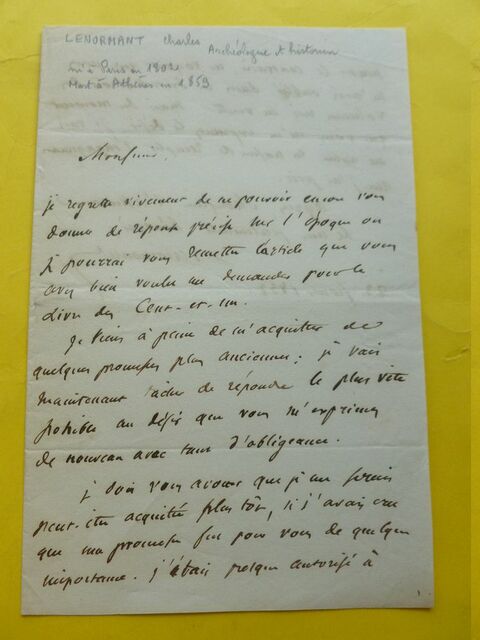 LENORMANT Charles Archéologue et historien
né à Paris en 1802
Mort à Athènes en 1859
Monsieur,
je regrette vivement de ne pouvoir encore vous
donner de réponse précise sur l'époque où
je pourrai vous remettre l'article que vous
avez bien voulu me demander pour le
livre des Cent-et-un.
Je viens à peine de m'acquitter de
quelques promesses plus anciennes : je vais
maintenant tâcher de répondre le plus vite
possible au désir que vous m'exprimez
de nouveau avec tant d'obligeance.
je dois vous avouer que je me serais
peut-être acquitté plus tôt, si j'avais cru
que ma promesse fut pour vous de quelque
importance. j'étais presque autorisé à